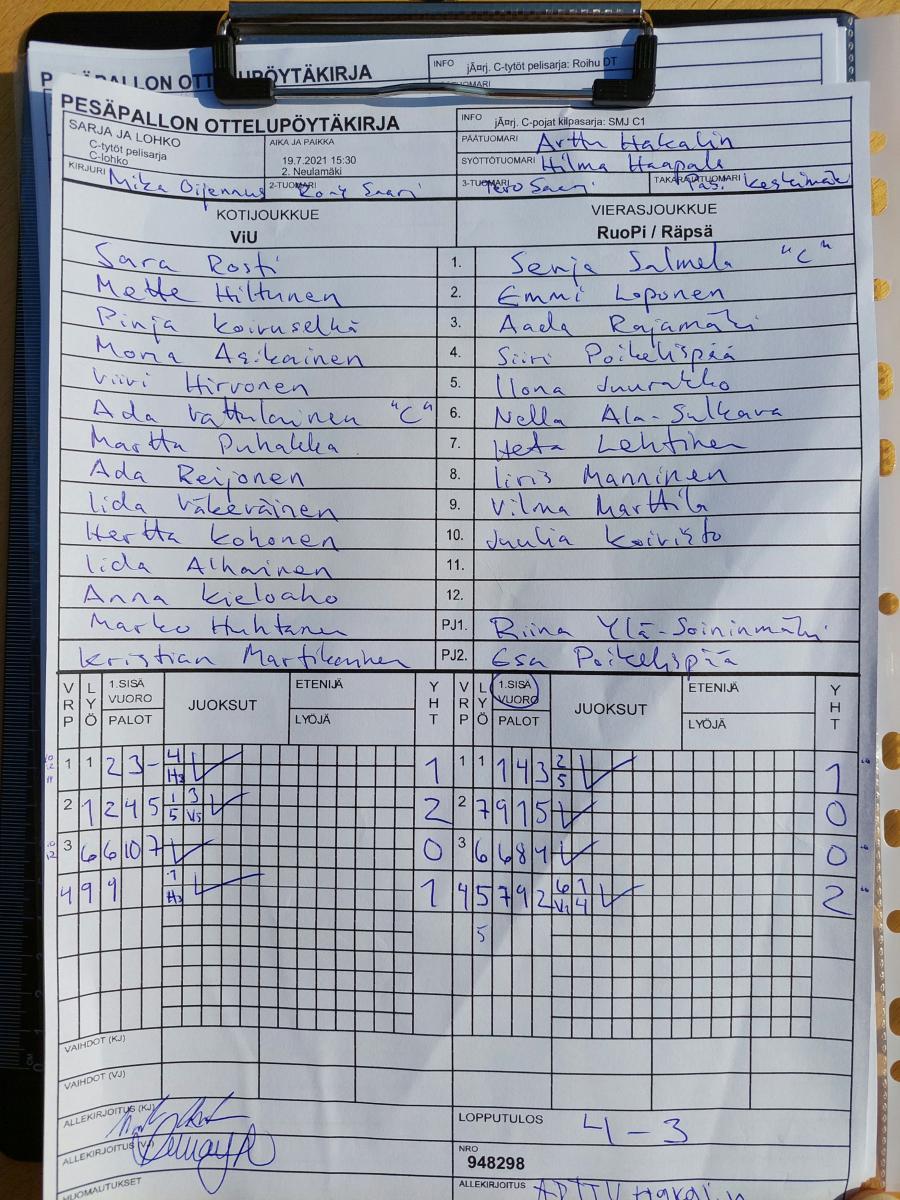 PESÄPALLON OTTELUPÖYTÄKIRJA
INFO jÃ¤rj. C-tytöt pelisarja: Roihu DT
PESÄPALLON OTTELUPÖYTÄKIRJA
INFO jÃ¤rj. C-pojat kilpasarja: SMJ C1
SARJA JA LOHKO
C-tytöt pelisarja
C-lohko
AIKA JA PAIKKA
19.7.2021 15:30
2. Neulamäki
PÄÄTUOMARI Arttu Hakalin
SYÖTTÖTUOMARI Hilma Haapala
KIRJURI Mika Oijennus
2-TUOMARI Roni Saari
3-TUOMARI Tero Saari
TAKARAJATUOMARI Pasi Keskimäki
KOTIJOUKKUE
ViU
VIERASJOUKKUE
RuoPi / Räpsä
Sara Rosti 1. Senja Salmela "C"
Mette Hiltunen 2. Emmi Loponen
Pinja Koivuselkä 3. Aada Rajamäki
Mona Asikainen 4. Siiri Poikelispää
Viivi Hirvonen 5. Ilona Juurakko
Ada Vattulainen "C" 6. Nella Ala-Sulkava
Martta Puhakka 7. Heta Lehtinen
Ada Reijonen 8. Iiris Manninen
Iida Väkeväinen 9. Vilma Marttila
Hertta Kohonen 10. Juulia Koivisto
Iida Alhainen 11.
Anna Kieloaho 12.
Marko Huhtanen PJ1. Riina Ylä-Soininmäki
Kristian Martikainen PJ2. Esa Poikelispää
VRP LYÖ 1.SISÄ VUORO PALOT JUOKSUT ETENIJÄ LYÖJÄ YHT VRP LYÖ 1.SISÄ VUORO PALOT JUOKSUT ETENIJÄ LYÖJÄ YHT
1 1 2 3 - 4 H3 1 1 1 1 4 3 2 5 1
2 1 2 4 5 1 5 3 V5 2 2 7 9 1 5 0
3 6 6 10 7 0 3 6 6 8 4 0
4 9 9 7 H3 1 4 5 7 9 2 6 V1 7 4 2
5
VAIHDOT (KJ)
VAIHDOT (VJ)
ALLEKIRJOITUS (KJ)
LOPPUTULOS 4 - 3
ALLEKIRJOITUS (VJ)
NRO
948298
HUOMAUTUKSET
ALLEKIRJOITUS ARTTU Hakalin